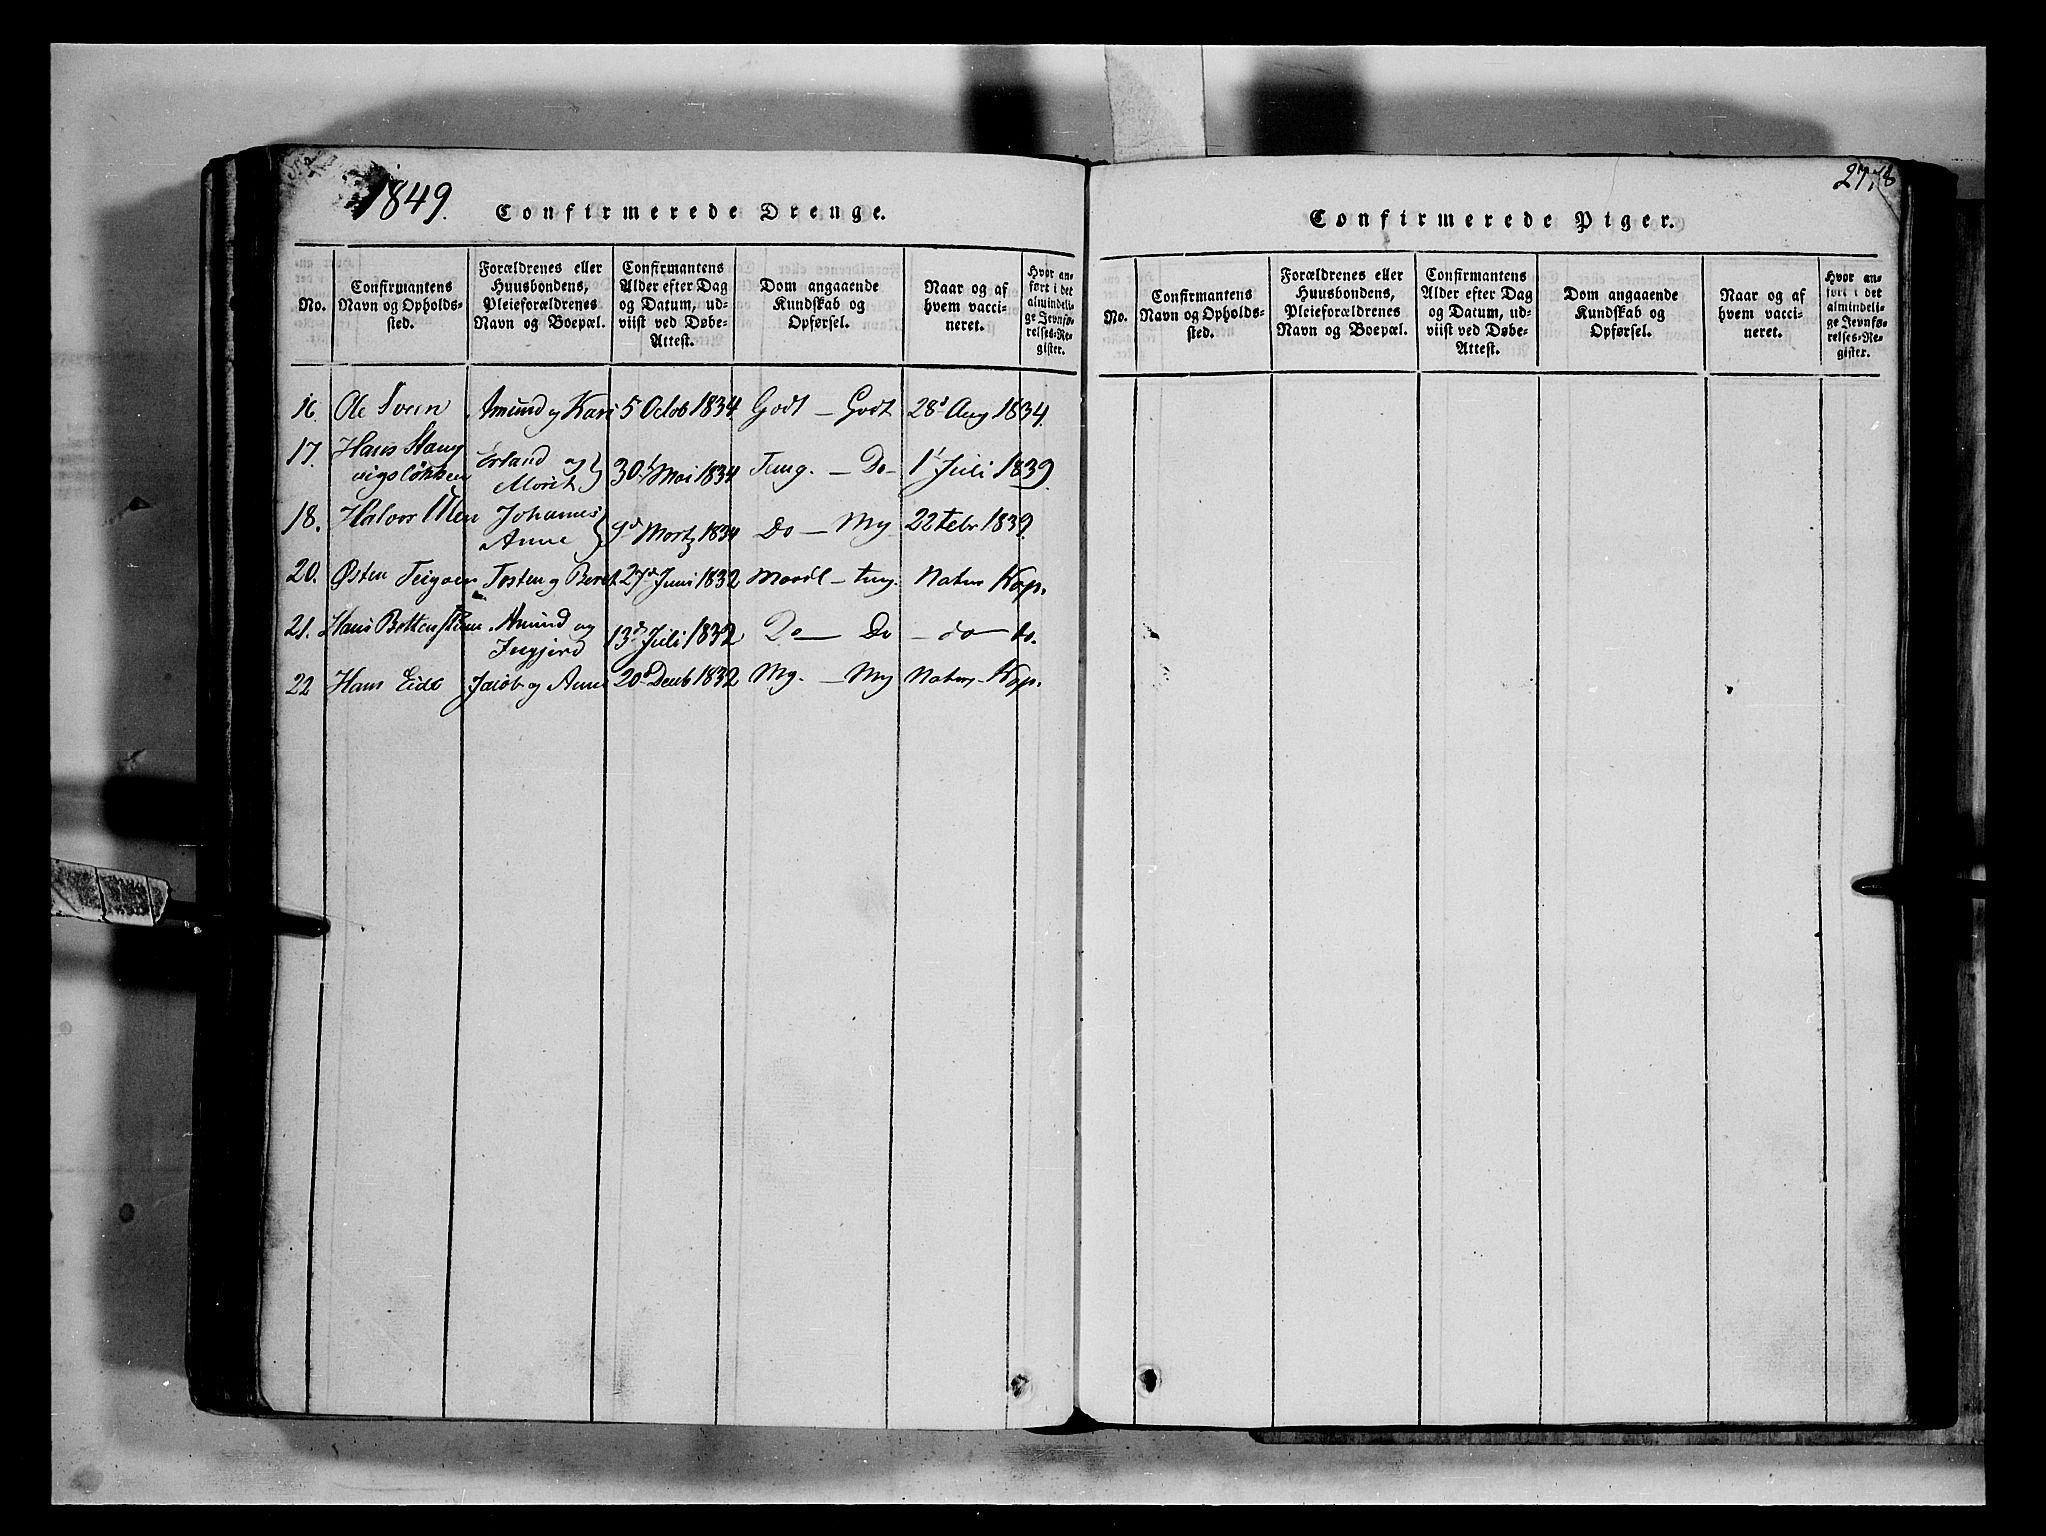 1849.
Confirmerede Drenge.
No.
Confirmantens Navn og Opholds-sted.
Forældrenes eller Huusbondens, Pleieforældrenes Navn og Boepæl.
Confirmantens Alder efter Dag og Datum, ud-viist ved Døbe-Attest.
Dom angaaende Kundskab og Opførsel.
Naar og af hvem vacci-neret.
Hvor an-ført i det almindeli-ge Jevnfø-relses-Re-gister.
16. Ole Sveen Amund og Kari 5 Octob 1834 Godt - Godt 28d Aug 1834.
17. Hans Stang
vigsløkken Erland og Marit 30t Mai 1834 Tung. - Do - 1t Juli 1839.
18. Halvor Johannes
Anne Martz 1834 Do - Mg 22 Febr 1839.
20. Østen Teigen Tosten og Berit 27d Juni 1832 Maadl - tug. Naturl Kop.
21. Hans Amund og
Ingjerd 13d Juli 1832 Do - Do - do - do.
22 Hans Eide Jacob og Anne 20d Decb 1832 Mg. - Mg Naturl - Kop.
Confirmerede Piger.
No.
Confirmantens Navn og Opholds-sted.
Forældrenes eller Huusbondens, Pleieforældrenes Navn og Boepæl.
Confirmantens Alder efter Dag og Datum, ud-viist ved Døbe-Attest.
Dom angaaende Kundskab og Opførsel.
Naar og af hvem vacci-neret.
Hvor an-ført i det almindeli-ge Jevnfø-relses-Re-gister.